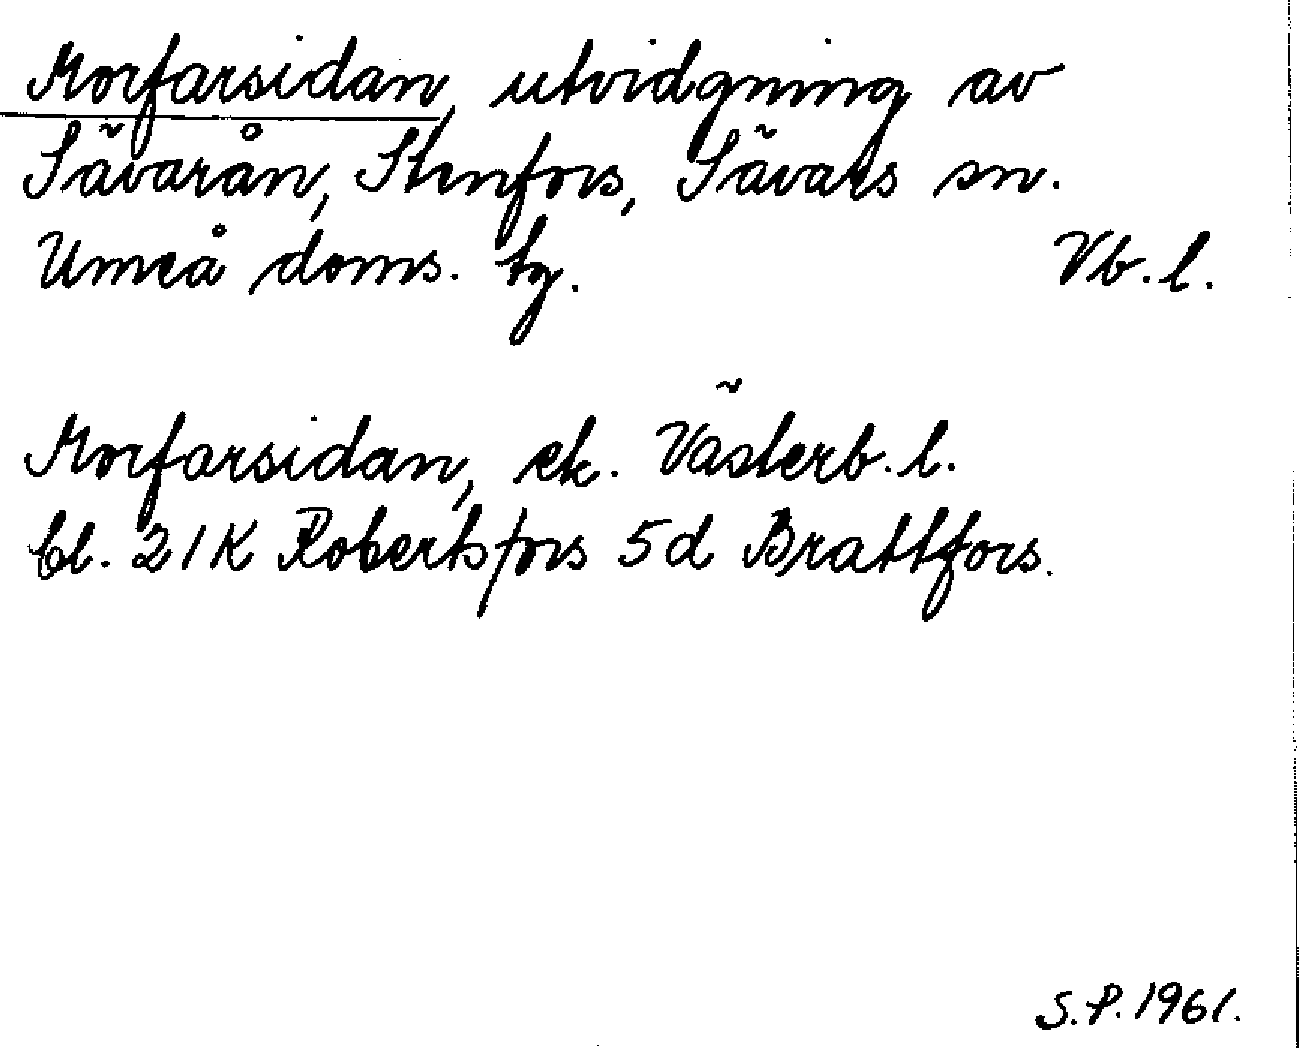 Morfarsidan, utvidgning av
Sävarån, Stenfors, Sävars sn.
Umeå doms. tg. Vb. l.
Morfarsidan, ek. Västerb. l.
bl. 21K Robertsfors 5d Brattfors.
S.P. 1961.